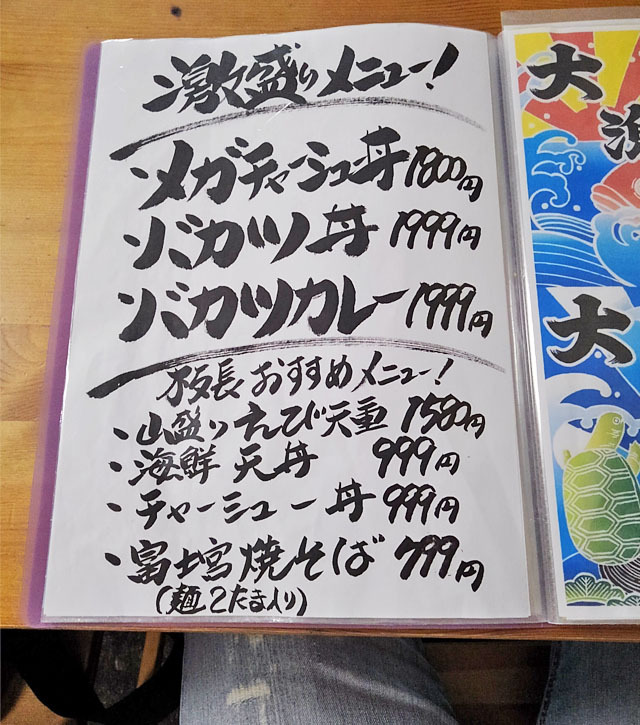 激盛りメニュー!
・メガチャーシュー丼 1800円
・バカツ丼 1999円
・バカツカレー 1999円
板長おすすめメニュー!
・山盛りえび天重 1580円
・海鮮天丼 999円
・チャーシュー丼 999円
・富士宮焼そば 799円
(麺2たま入り)
大
漁
大